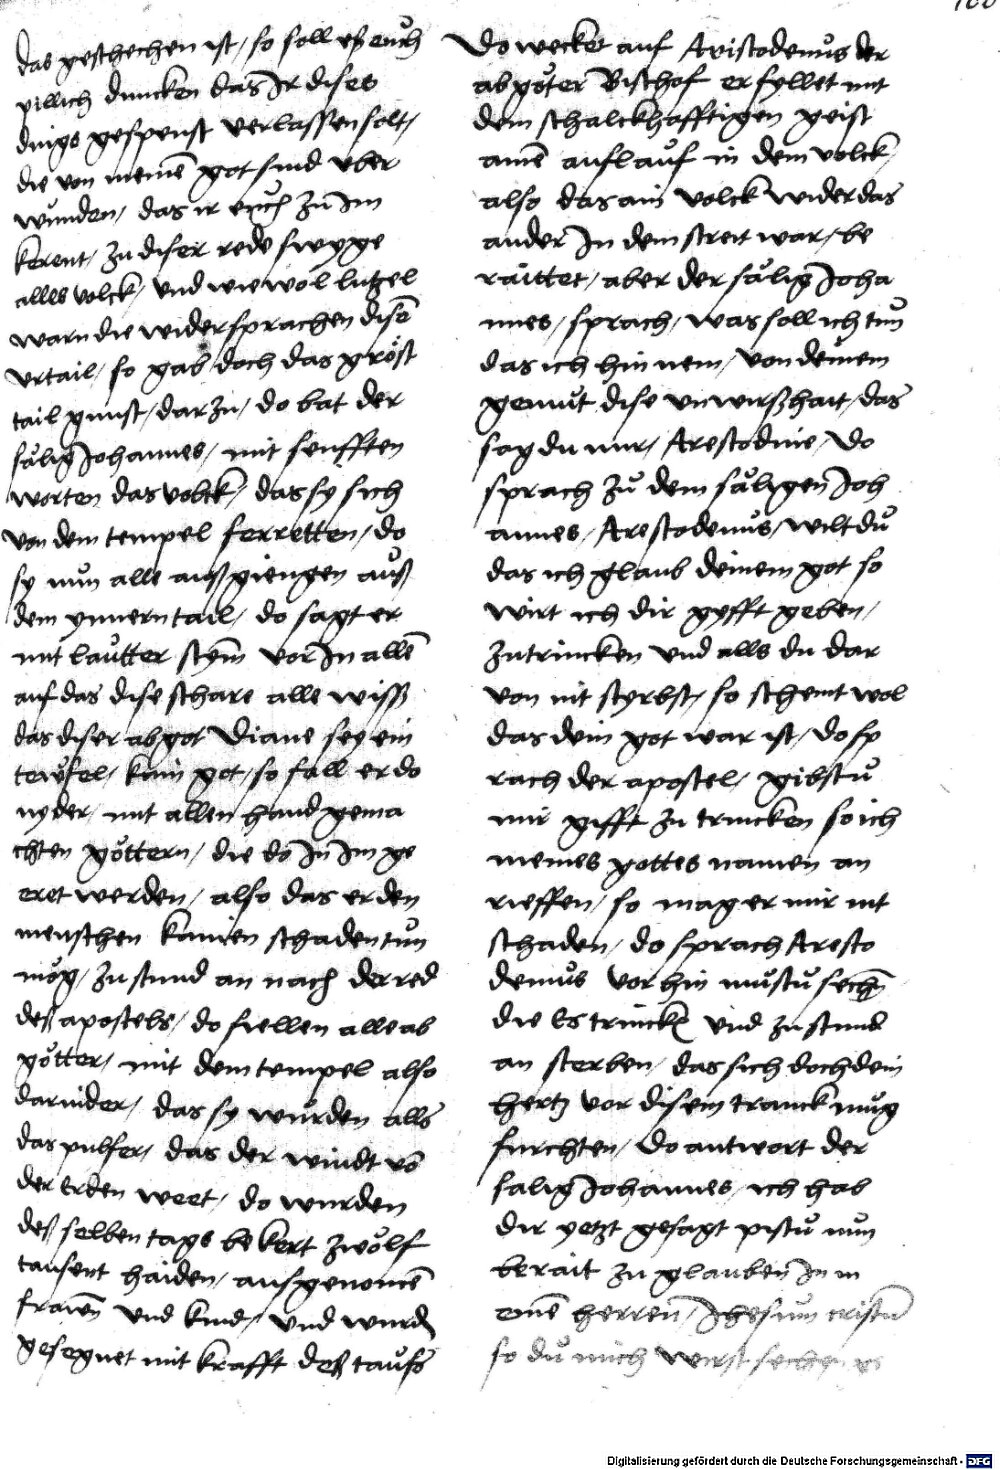 das geschechen ist / so soll es euch
pillich duncken das Ir dises
dings gespenst verlassen solt /
die von meinē got sind vber
wunden / das ir euch zu Im
kerent / zu diser rede swyge
alles volck / vnd wiewol lutzel
warn die widersprachen disē
vrtail / so gab doch das gröst
tail gunst / darzu / do bat der
sälig Johannes / mit senfften
worten das volck / das sy sich
von dem tempel ferretten / do
sy nun alle auß giengen auß
dem ynnern tail / do sagt er
mit laůtter stym̄ vor In allē
auf das dise schare alle wiss
das diser abgot Diane sey ein
teẅfel / kain got / so fall er do
nyder / mit allen hand gema
chten göttern / die do In Im ge
eret werden / also das er den
menschen kainen schaden tun
mög / zu stund an nach der red
deß apostels / do fiellen alle ab
götter / mit dem tempel also
darnider / das sy wurden alls
das pulfer / das der windt vō
der erden weet / do wurden
deß selben tags bekert zwölf
tausent haiden / ausgenomē
frawen vnd kind / vnd wurdn
gesegnet mit krafft deß taufs
Do wecket auf Aristodemůs der
abgöter Bischof erfyllet mit
dem schalckhafftigen geist
ainē auflauf in dem volck /
also das ain volck wider das
ander In dem streit war / be
raittet / aber der sälig Joha
nnes / sprach / was soll ich tun
das ich hin nem / von deinem
gemüt dise vnwirßhait / das
sag du mir / Arestodine / Do
sprach zů dem säligen Joh
annes / Arestodemůs / wilt dů
das ich glaub deinem got so
wirt ich dir gyfft geben /
zu trincken vnd alls du dar
von nit styrbst / so scheint wol
das dein got war ist / do sp
rach der apostel / gibstu
mir gifft zu trincken so ich
meines gottes namen an
rieffen / so mag er mir nit
schaden / do sprach Aresto
demůs vor hin mustu sechn̄
die es trincken vnd zu stund
an sterben / das sich doch dein
hertz vor disem tranck mug
furchten / Do antwort der
salig Johannes / ich hab
dir yetzt gesagt pistu nun
berait zu glauben In m
einē herren / Jhesum cristū
so du mich wirst sechen